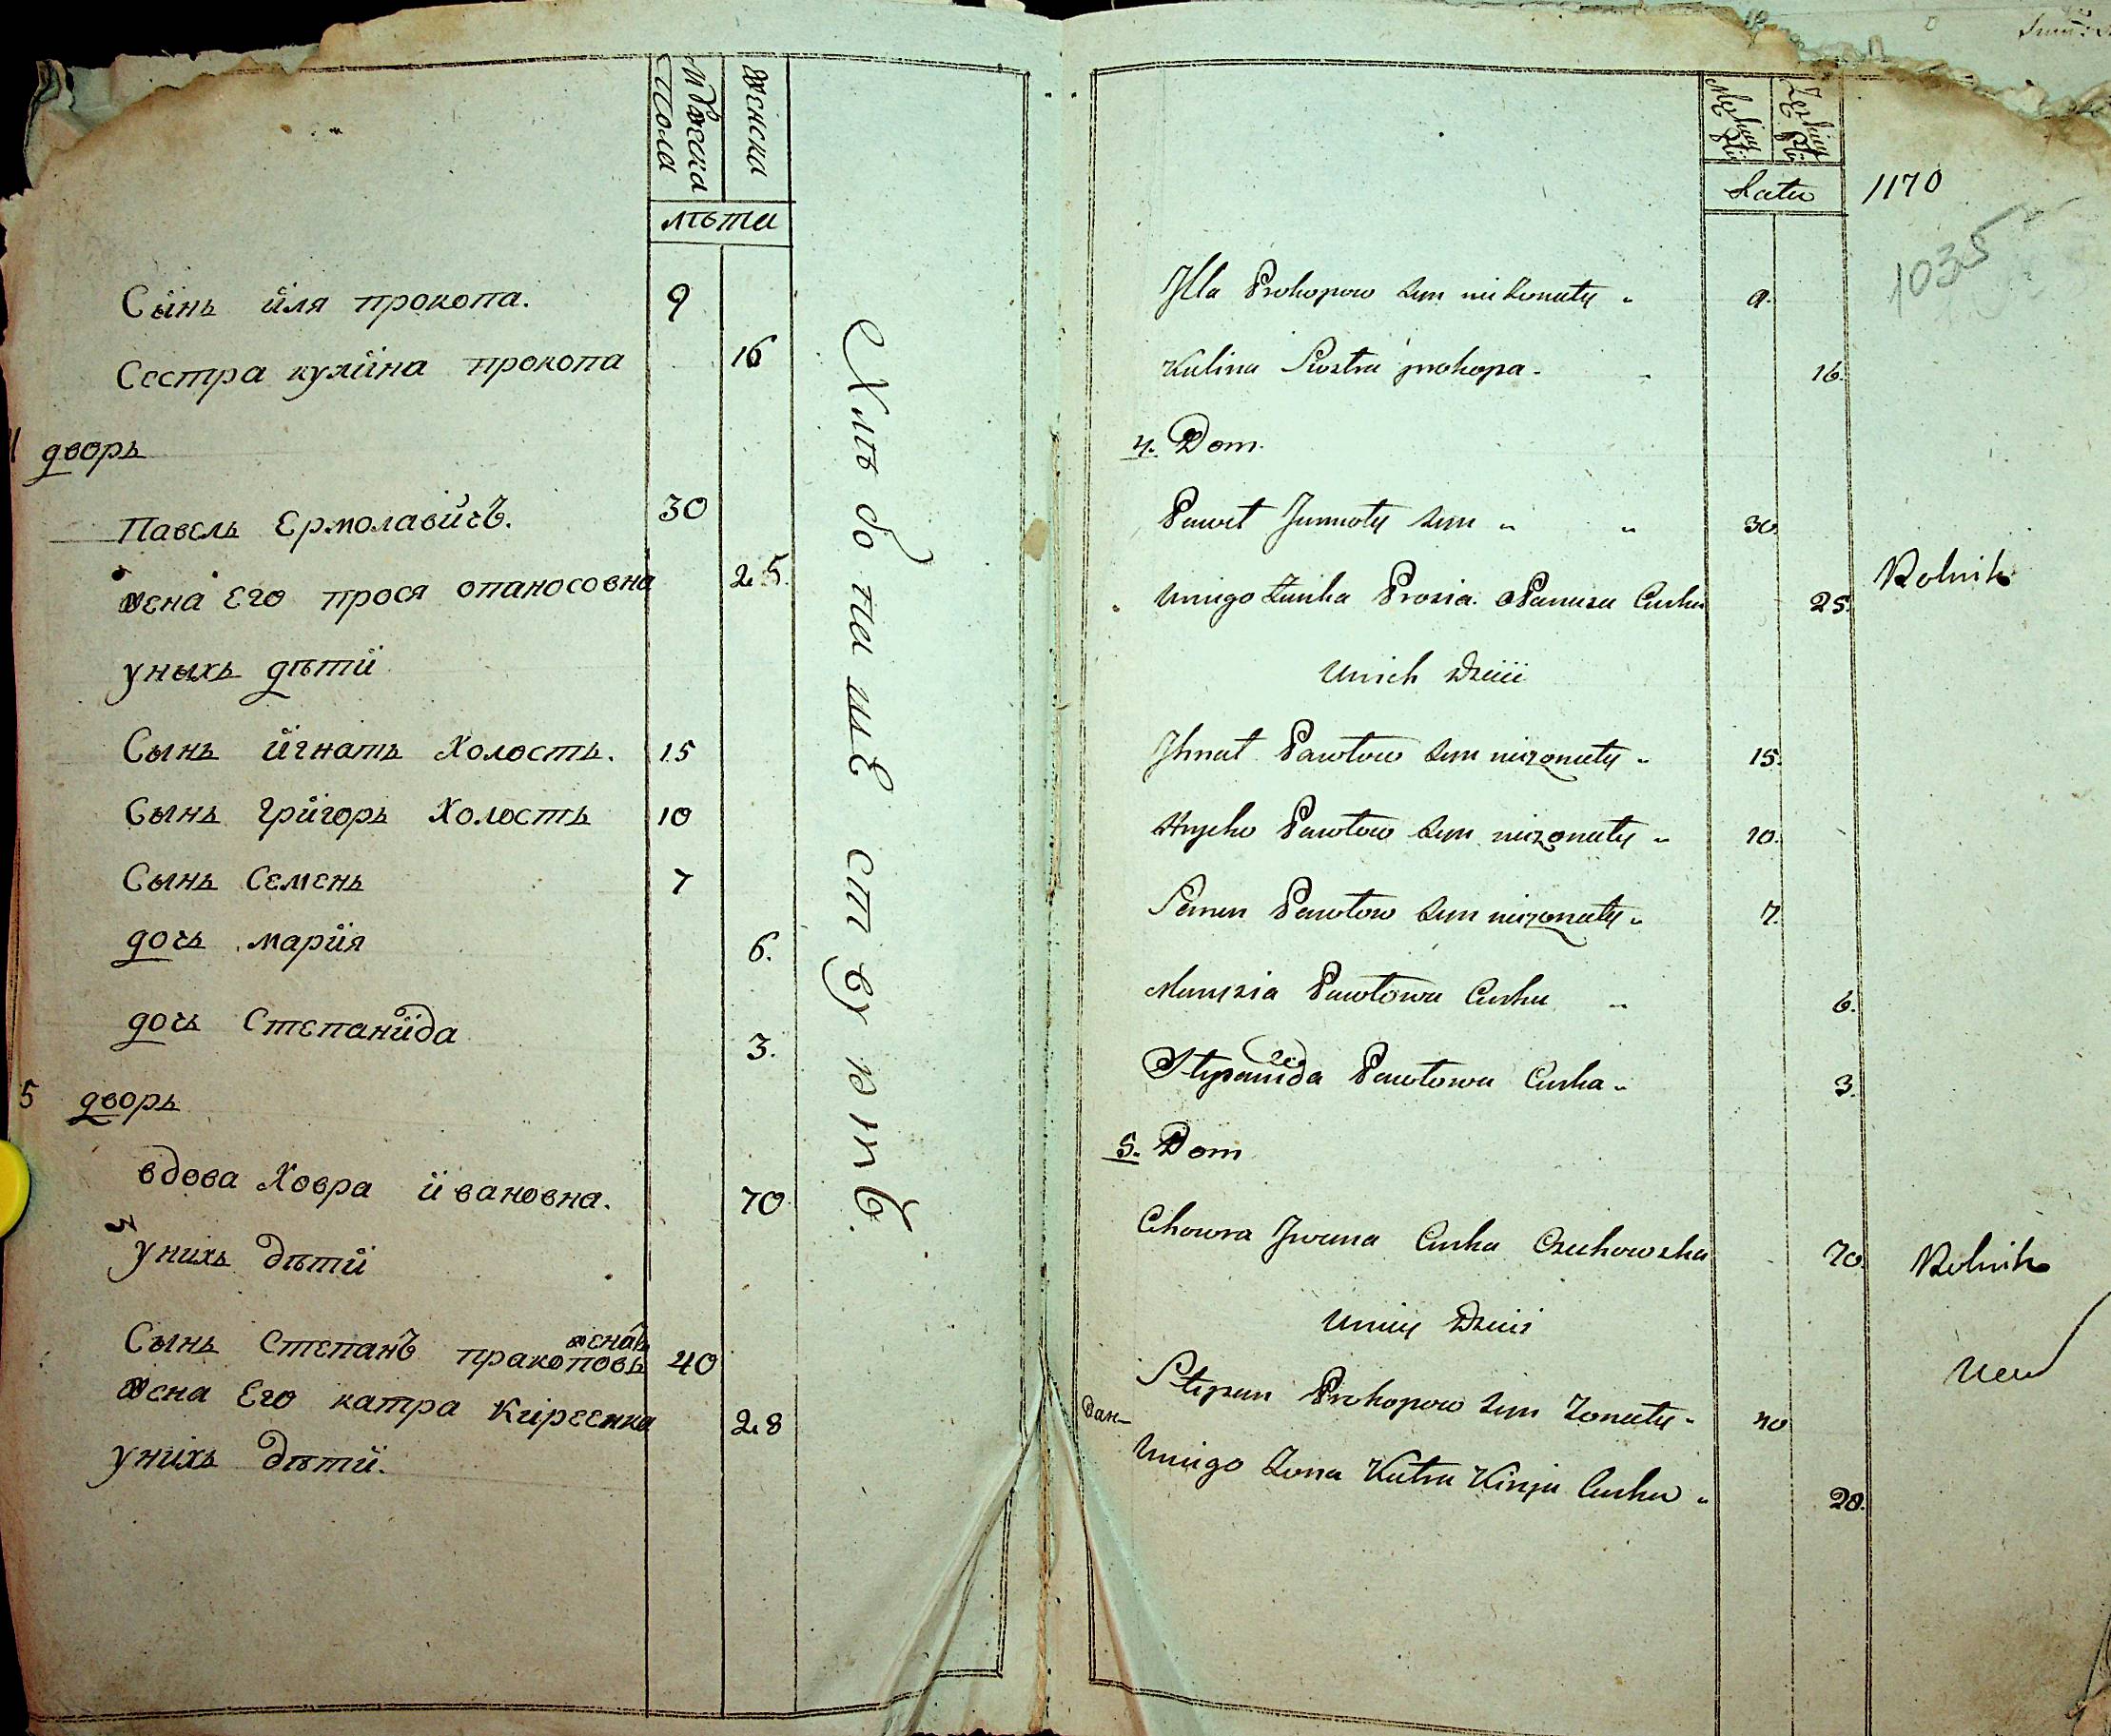 мужеска пола
женска
лѣта
Сынь иля прокопа. 9
Сестра кулина прокопа 16
дворь
Павель Ермолавичъ. 30
жена Его прося опаносовна 25.
уныхь дѣти
Сынь игнать Холость. 15
Сынь григорь Холость 10
Сынь Семень 7
дочь мария 6.
дочь Степанида 3.
5 дворь
вдова Ховра ивановна. 70
унихь дѣти
Сынь Степанъ пракоповь женать 40
жена Его катра Киреенка 28
унихь дѣти.
Хлѣбопашествують.
Latu
1170
1035
Jlla Prokopow Syn nieżonaty 9.
Kulina Siostra prokopa 16.
4. Dom.
Paweł Jermoły Syn 30.
Uniego Żonka Prosia oPanasa Curka 25. Rolnik
Unich Dzieci
Jhnat Pawłow Syn nieżonaty 15.
Hryćko Pawłow Syn nieżonaty 10.
Semen Pawłow Syn nieżonaty 7.
Marysia Pawłowa Curka 6.
Stepanida Pawłowa Curka 3.
5. Dom
Chowra Jwana Curka 70. Rolnik
Uniey Dzieci
Stepan Prokopow Syn Żonaty 40
Uniego Żona Katra Kireja Curka 28.